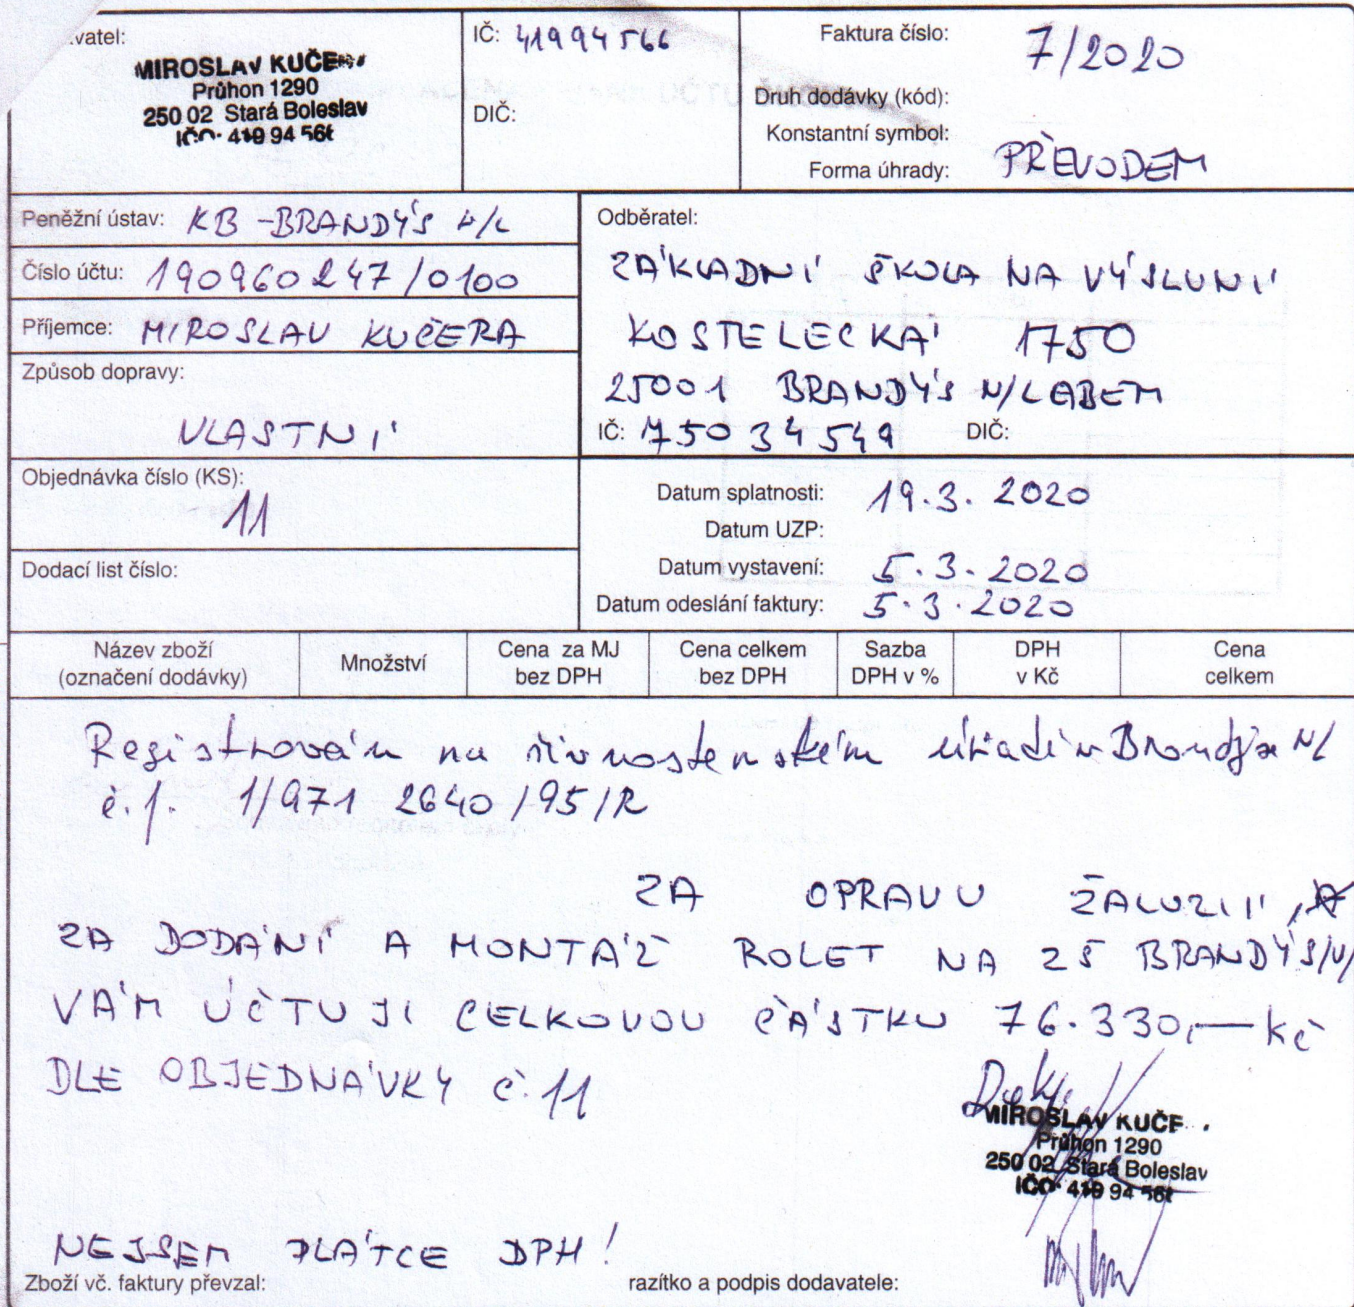 vatel:
MIROSLAV KUČE
Průhon 1290
250 02 Stará Boleslav
IČO: 419 94 566
IČ: 41994566
DIČ:
Faktura číslo: 7/2020
Druh dodávky (kód):
Konstantní symbol:
Forma úhrady: PŘEVODEM
Peněžní ústav: KB - BRANDÝS n/L
Číslo účtu: 190960247/0100
Příjemce: MIROSLAV KUČERA
Způsob dopravy:
VLASTNÍ
Objednávka číslo (KS):
11
Dodací list číslo:
Odběratel:
ZÁKLADNÍ ŠKOLA NA VÝSLUNÍ
KOSTELECKÁ 1750
25001 BRANDÝS N/LABEM
IČ: 75034549 DIČ:
Datum splatnosti: 19.3.2020
Datum UZP:
Datum vystavení: 5.3.2020
Datum odeslání faktury: 5.3.2020
Název zboží
(označení dodávky)
Množství
Cena za MJ
bez DPH
Cena celkem
bez DPH
Sazba
DPH v %
DPH
v Kč
Cena
celkem
Registrován na živnostenském úřadě v Brandýse N/
č.j. 1/971 2640/95/R
ZA OPRAVU ŽALUZIÍ,
ZA DODÁNÍ A MONTÁŽ ROLET NA ZŠ BRANDÝS/N/
VÁM ÚČTUJI CELKOVOU ČÁSTKU 76.330,— Kč
DLE OBJEDNÁVKY č. 11
MIROSLAV KUČE
Průhon 1290
250 02 Stará Boleslav
IČO: 419 94 566
NEJSEM PLÁTCE DPH!
Zboží vč. faktury převzal:
razítko a podpis dodavatele: